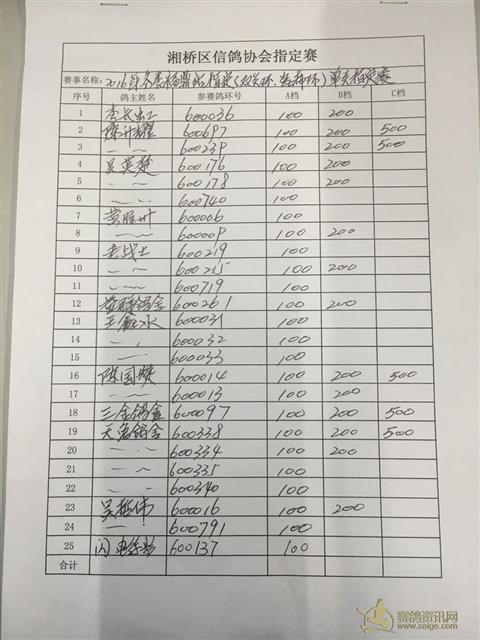 湘桥区信鸽协会指定赛
赛事名称：2016年冬季 指定(双关环、 环)单关指定赛
序号 鸽主姓名 参赛鸽环号 A档 B档 C档
1 李 600036 100 200
2 陈 耀 600697 100 200 500
3 — ~ 600239 100 200 500
4 吴英楚 600176 100 200
5 - ~ 600178 100 200
6 - ~ 600740 100
7 黄 州 600006 100
8 — ~ 60000P 100 200
9 老战士 600219 100
10 - ~ 600215 100 200
11 - ~ 600719 100
12 鸽舍 600261 100 200
13 王 水 600031 100
14 — - 600032 100
15 — - 600033 100
16 陈国 600014 100 200 500
17 — ~ 600013 100 200
18 三金鸽舍 600097 100 200 500
19 天 鸽舍 600338 100 200 500
20 — - 600334 100 200
21 - ~ 600335 100
22 — ~ 600340 100
23 吴 伟 600016 100 200
24 — 600791 100
25 闪电 600137 100
合计
赛鸽资讯网
www.saige.com